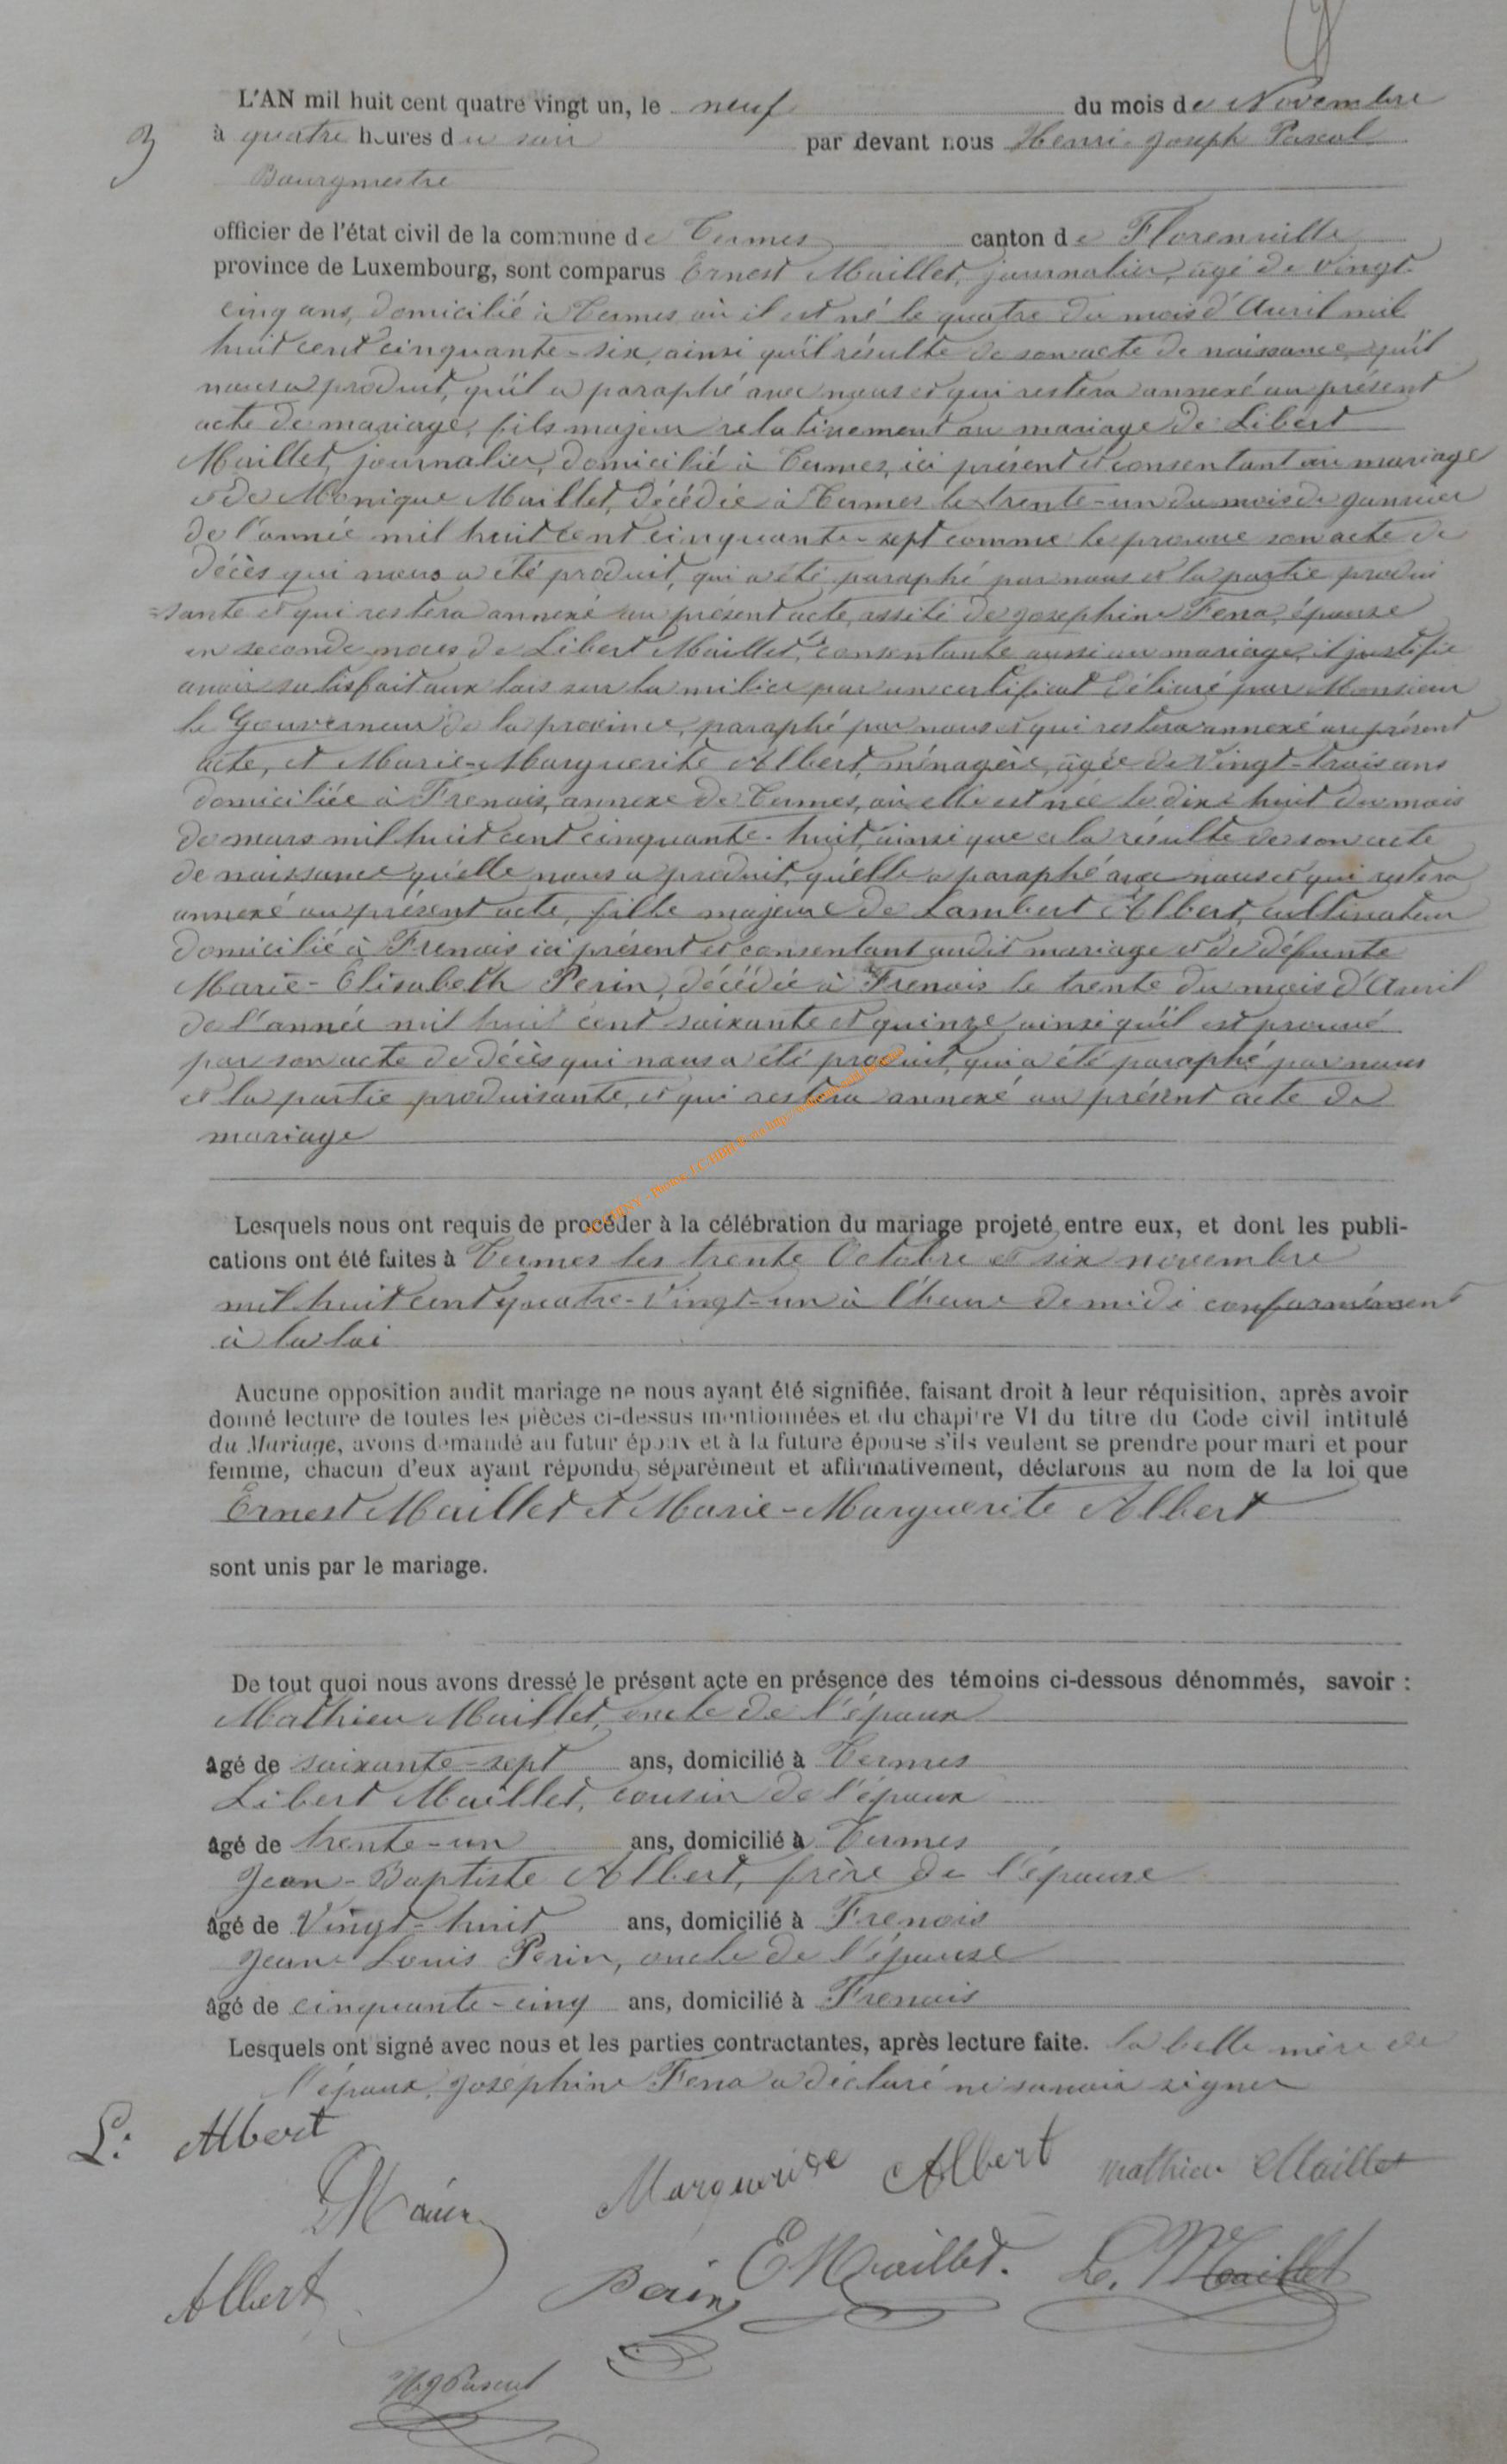 L'AN mil huit cent quatre vingt un, le neuf du mois de Novembre
3
à quatre heures du soir par devant nous Henri-Joseph Pascal
Bourgmestre
officier de l'état civil de la commune de Termes canton de Florenville
province de Luxembourg, sont comparus Ernest Maillet, journalier, âgé de vingt-
cinq ans, domicilié à Termes où il est né le quatre du mois d'Avril mil
huit cent cinquante-six, ainsi qu'il résulte de son acte de naissance, qu'il
nous a produit, qu'il a paraphé avec nous et qui restera annexé au présent
acte de mariage, fils majeur relativement au mariage de Libert
Maillet, journalier, domicilié à Termes, ici présent et consentant au mariage
et de Monique Maillet, décédée à Termes le trente-un du mois de Janvier
de l'année mil huit cent cinquante-sept comme le prouve son acte de
décès qui nous a été produit, qui a été paraphé par nous et la partie produi
=sante et qui restera annexé au présent acte, assité de Josephine Fena, épouse
en seconde noces de Libert Maillet, consentante aussi au mariage, il justifie
avoir satisfait aux lois sur la milice par un certificat délivré par Monsieur
le Gouverneur de la province, paraphé par nous et qui restera annexé au présent
acte, et Marie-Marguerite Albert, ménagère, âgée de Vingt-trois ans
domiciliée à Frenois, annexe de Termes, où elle est née le dix-huit du mois
de mars mil huit cent cinquante-huit, ainsi que cela résulte de son acte
de naissance qu'elle nous a produit, qu'elle a paraphé avec nous et qui restera
annexé au présent acte, fille majeure de Lambert Albert, cultivateur
domicilié à Frenois ici présent et consentant audit mariage et de défunte
Marie-Elisabeth Perin, décédée à Frenois le trente du mois d'Avril
de l'année mil huit cent soixante et quinze, ainsi qu'il est prouvé
par son acte de décès qui nous a été produit, qui a été paraphé par nous
et la partie produisante, et qui restera annexé au présent acte de
mariage
Lesquels nous ont requis de procéder à la célébration du mariage projeté entre eux, et dont les publi-
cations ont été faites à Termes les trente Octobre et six novembre
mil huit cent quatre-Vingt-un à l'heure de midi conformément
à la loi
Aucune opposition audit mariage ne nous ayant été signifiée, faisant droit à leur réquisition, après avoir
donné lecture de toutes les pièces ci-dessus mentionnées et du chapitre VI du titre du Code civil intitulé
du Mariage, avons demandé au futur époux et à la future épouse s'ils veulent se prendre pour mari et pour
femme, chacun d'eux ayant répondu séparément et affirmativement, déclarons au nom de la loi que
Ernest Maillet et Marie-Marguerite Albert
sont unis par le mariage.
De tout quoi nous avons dressé le présent acte en présence des témoins ci-dessous dénommés, savoir :
Mathieu Maillet, oncle de l'époux
âgé de soixante-sept ans, domicilié à Termes
Libert Maillet, cousin de l'époux
âgé de trente-un ans, domicilié à Termes
Jean-Baptiste Albert, frère de l'épouse
âgé de Vingt-huit ans, domicilié à Frenois
Jean Louis Perin, oncle de l'épouse
âgé de cinquante-cinq ans, domicilié à Frenois
Lesquels ont signé avec nous et les parties contractantes, après lecture faite. la belle mère de
l'époux, Josephine Fena a déclaré ne savoir signer
L: Albert
Marguerite Albert mathieu Maillet
Albert Perin E Maillet. L. Maillet
HJ Pascal